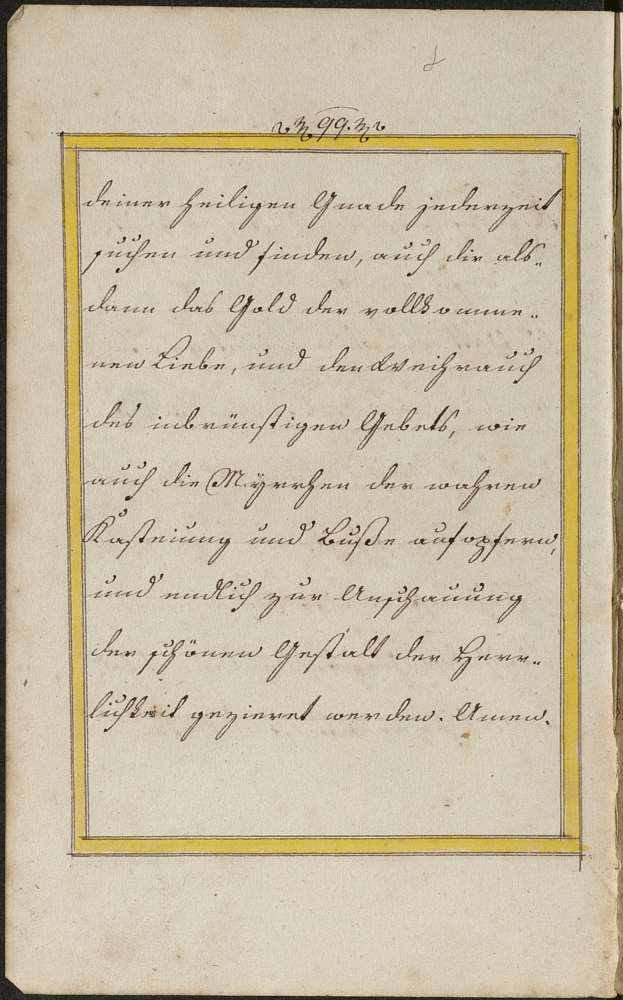 99.
deiner heiligen Gnade jederzeit
suchen und finden, auch dir als„
dann das Gold der vollkomme„
nen Liebe, und den Weihrauch
des inbrünstigen Gebets, wie
auch die Myrrhen der wahren
Kasteiung und Buße aufopfern,
und endlich zur Anschauung
der schönen Gestalt der Herr„
lichkeit gezieret werden. Amen.